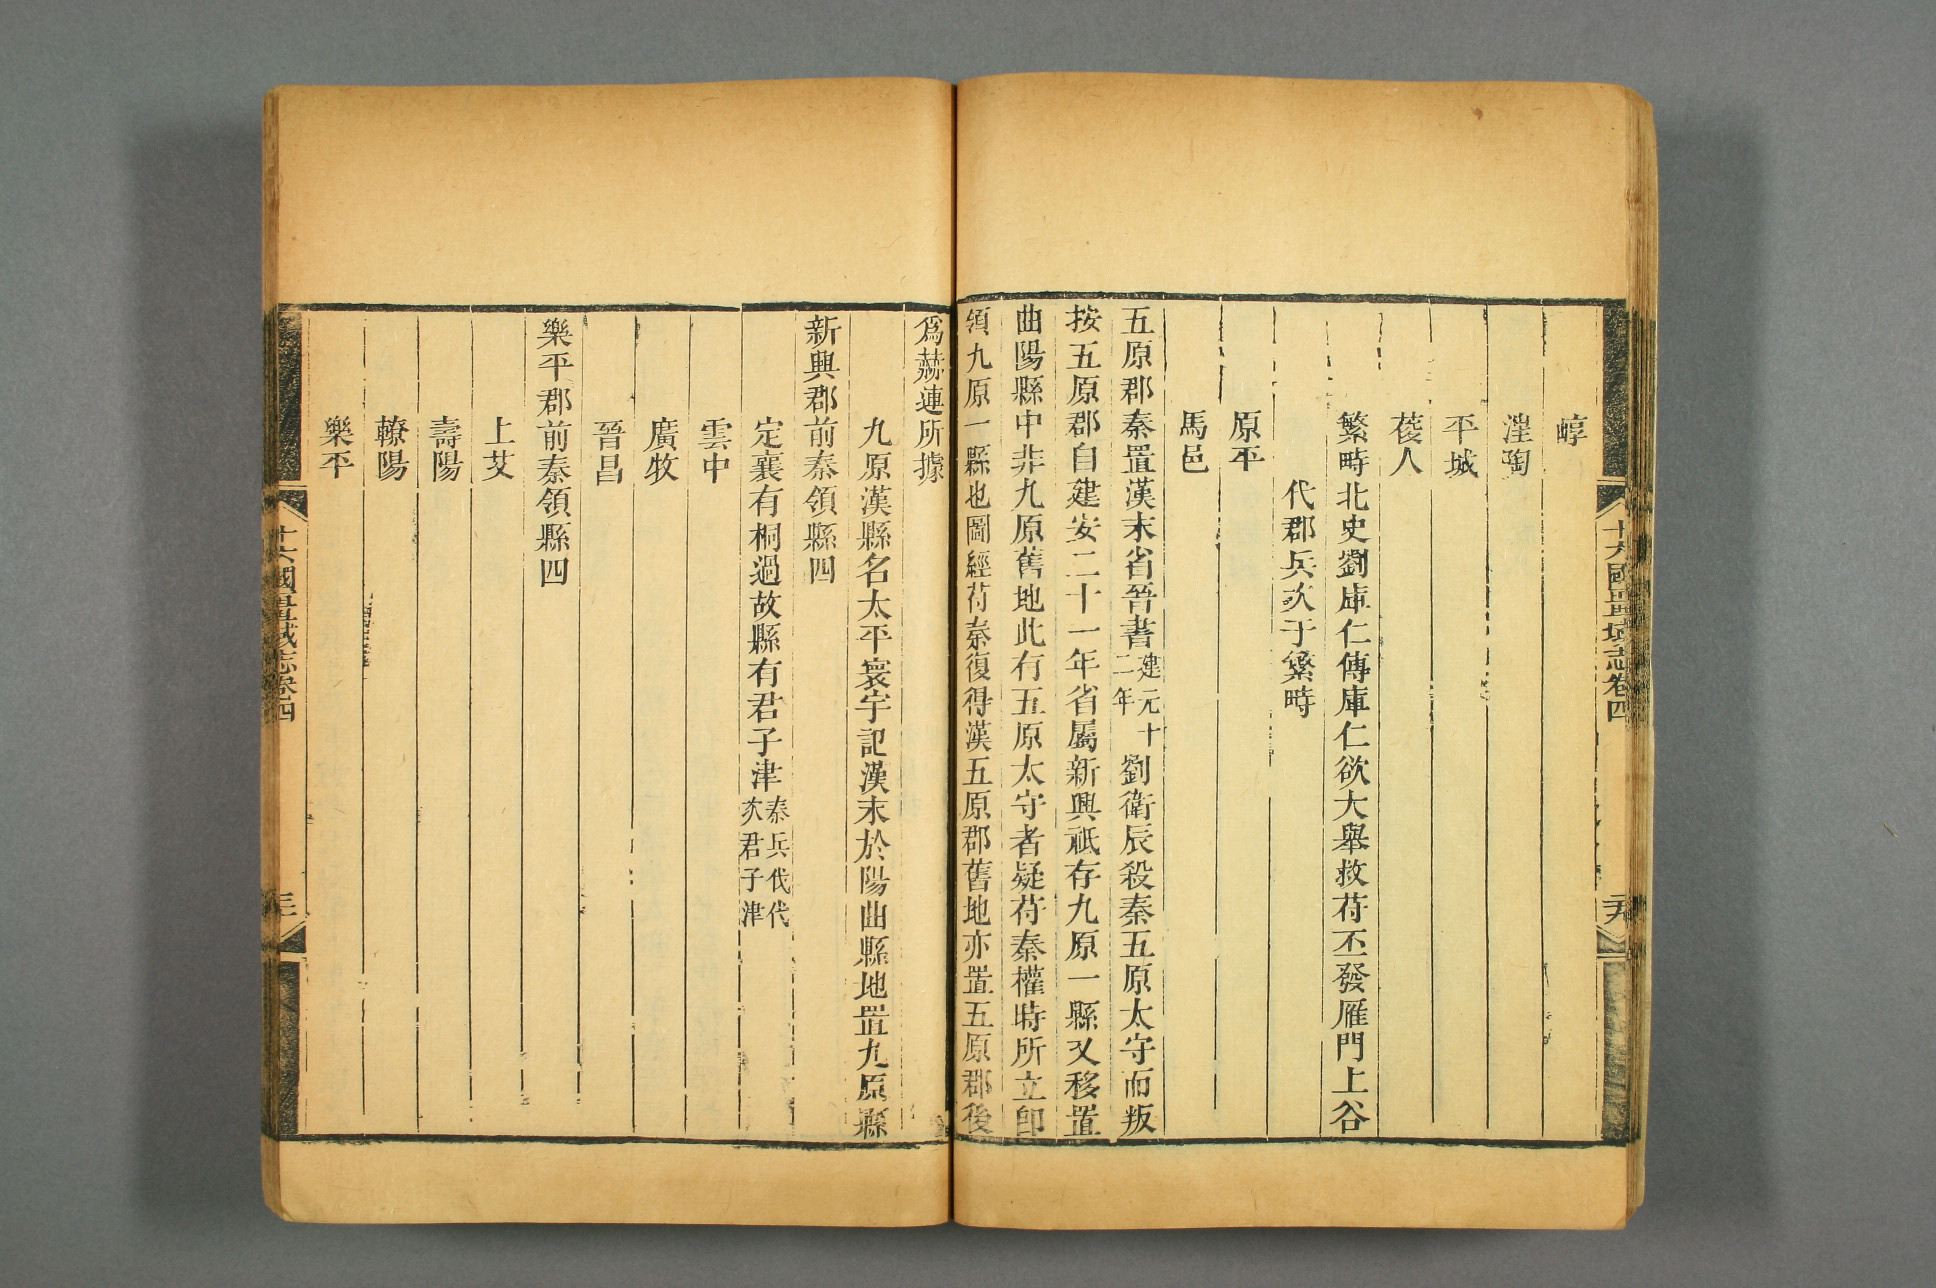 崞
漄陶
平城
葰人
繁畤北史劉庫仁傳庫仁欲大舉救苻丕發雁門上谷
代郡兵次于繁畤
原平
馬邑
五原郡秦置漢末省晉書建元十二年劉衛辰殺秦五原太守而叛
按五原郡自建安二十一年省屬新興祇存九原一縣又移置
曲陽縣中非九原舊地此有五原太守者疑苻秦權時所立卽
領九原一縣也圖經苻秦復得漢五原郡舊地亦置五原郡後
爲赫連所據
九原漢縣名太平寰宇記漢末於陽曲縣地置九原縣
新興郡前秦領縣四
定襄有桐過故縣有君子津秦兵伐代次君子津
雲中
廣牧
晉昌
樂平郡前秦領縣四
上艾
壽陽
轑陽
樂平
十六國疆域志卷四
十六國疆域志卷四